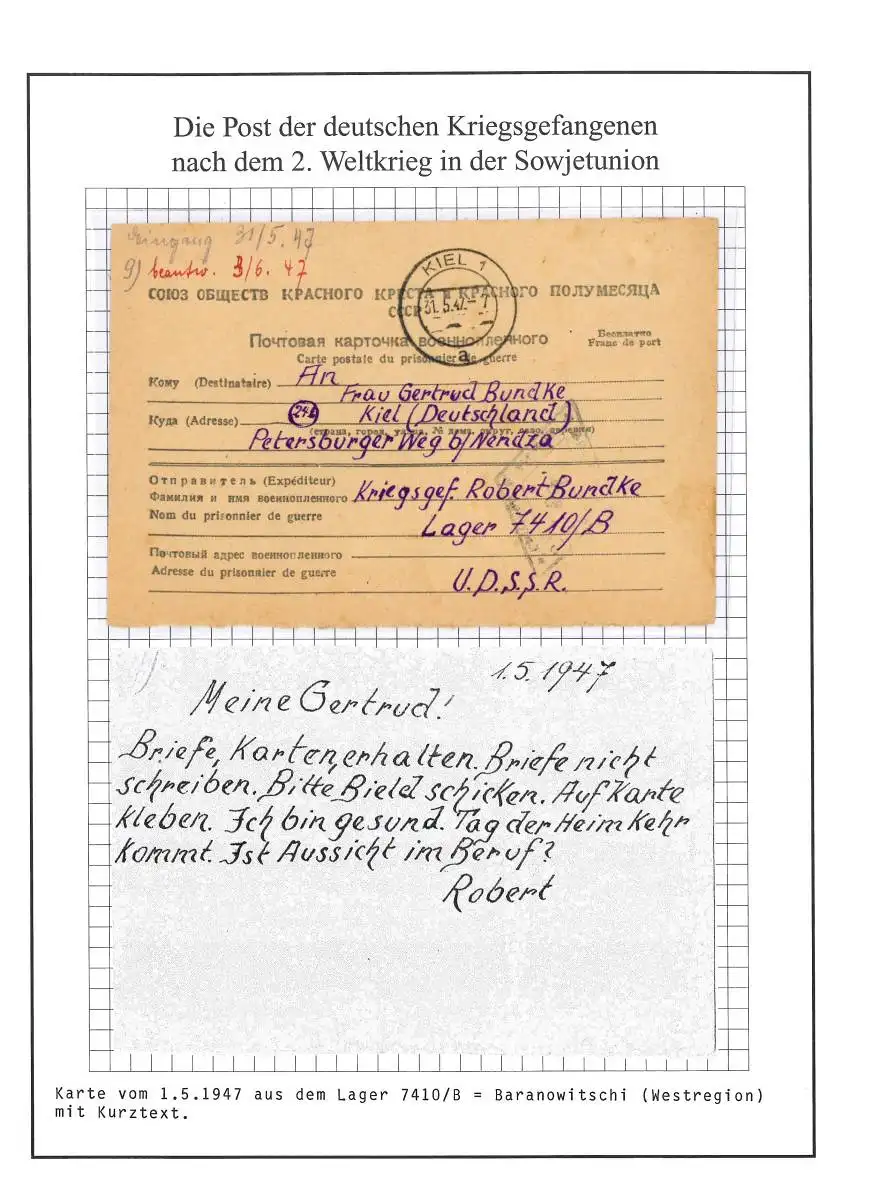 Die Post der deutschen Kriegsgefangenen
nach dem 2. Weltkrieg in der Sowjetunion
Eingang 31/5. 47
9) beantw. 3/6. 47
KIEL 1
31.5.47.-7
a
СОЮЗ ОБЩЕСТВ КРАСНОГО КРЕСТА и КРАСНОГО ПОЛУМЕСЯЦА
СССР
Почтовая карточка военнопленного
Carte postale du prisonnier de guerre
Бесплатно
Franc de port
Кому (Destinataire) An
Frau Gertrud Bundke
Куда (Adresse) 24b Kiel (Deutschland)
(страна, город, улица, № дома, округ, село, деревня)
Petersburger Weg b/Nendza
Отправитель (Expéditeur)
Фамилия и имя военнопленного Kriegsgef. Robert Bundke
Nom du prisonnier de guerre
Lager 7410/B
Почтовый адрес военнопленного
Adresse du prisonnier de guerre
U.D.S.S.R.
1.5.1947
Meine Gertrud!
Briefe, Karten, erhalten. Briefe nicht
schreiben. Bitte Bield schicken. Auf Karte
kleben. Ich bin gesund. Tag der Heimkehr
kommt. Ist Aussicht im Beruf?
Robert
Karte vom 1.5.1947 aus dem Lager 7410/B = Baranowitschi (Westregion)
mit Kurztext.